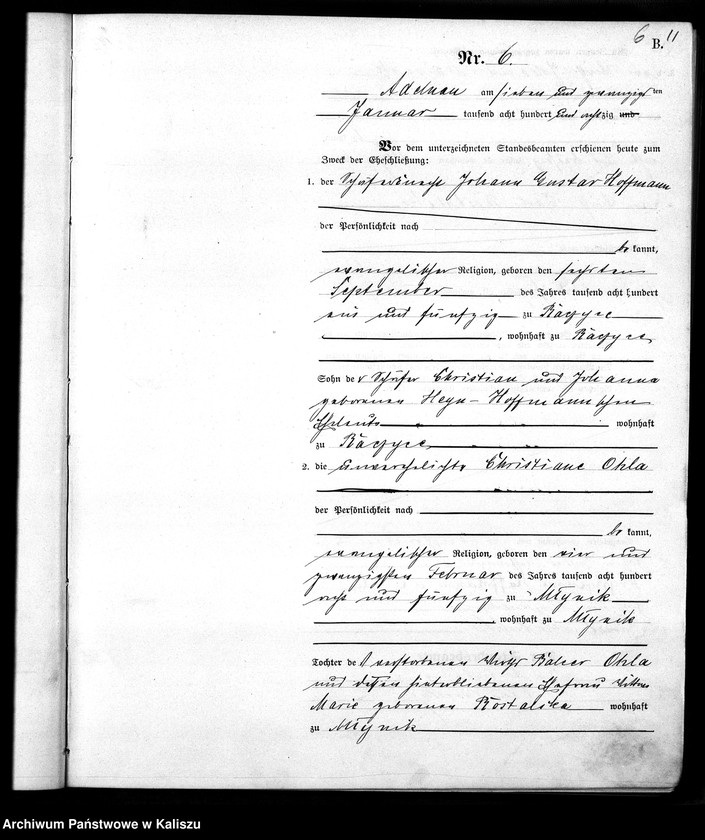 6 11
B.
Nr. 6.
Adelnau am sieben und zwanzigsten
Januar tausend acht hundert und achtzig und
Vor dem unterzeichneten Standesbeamten erschienen heute zum
Zweck der Eheschließung:
1. der Schäferknecht Johann Gustav Hoffmann
der Persönlichkeit nach
be kannt,
evangelischer Religion, geboren den sechsten
September des Jahres tausend acht hundert
ein und fünfzig zu
, wohnhaft zu
Sohn der Schäfer Christian und Johanna
geborenen Heyn - Hoffmannschen
Eheleute wohnhaft
zu
2. die unverehelichte Christiane Okla
der Persönlichkeit nach
be kannt,
evangelischer Religion, geboren den vier und
zwanzigsten Februar des Jahres tausend acht hundert
acht und fünfzig zu Młynik
, wohnhaft zu Młynik
Tochter des verstorbenen Wirths Okla
und dessen hinterbliebenen Ehefrau
Marie geborenen Rostalska wohnhaft
zu Młynik
Archiwum Państwowe w Kaliszu